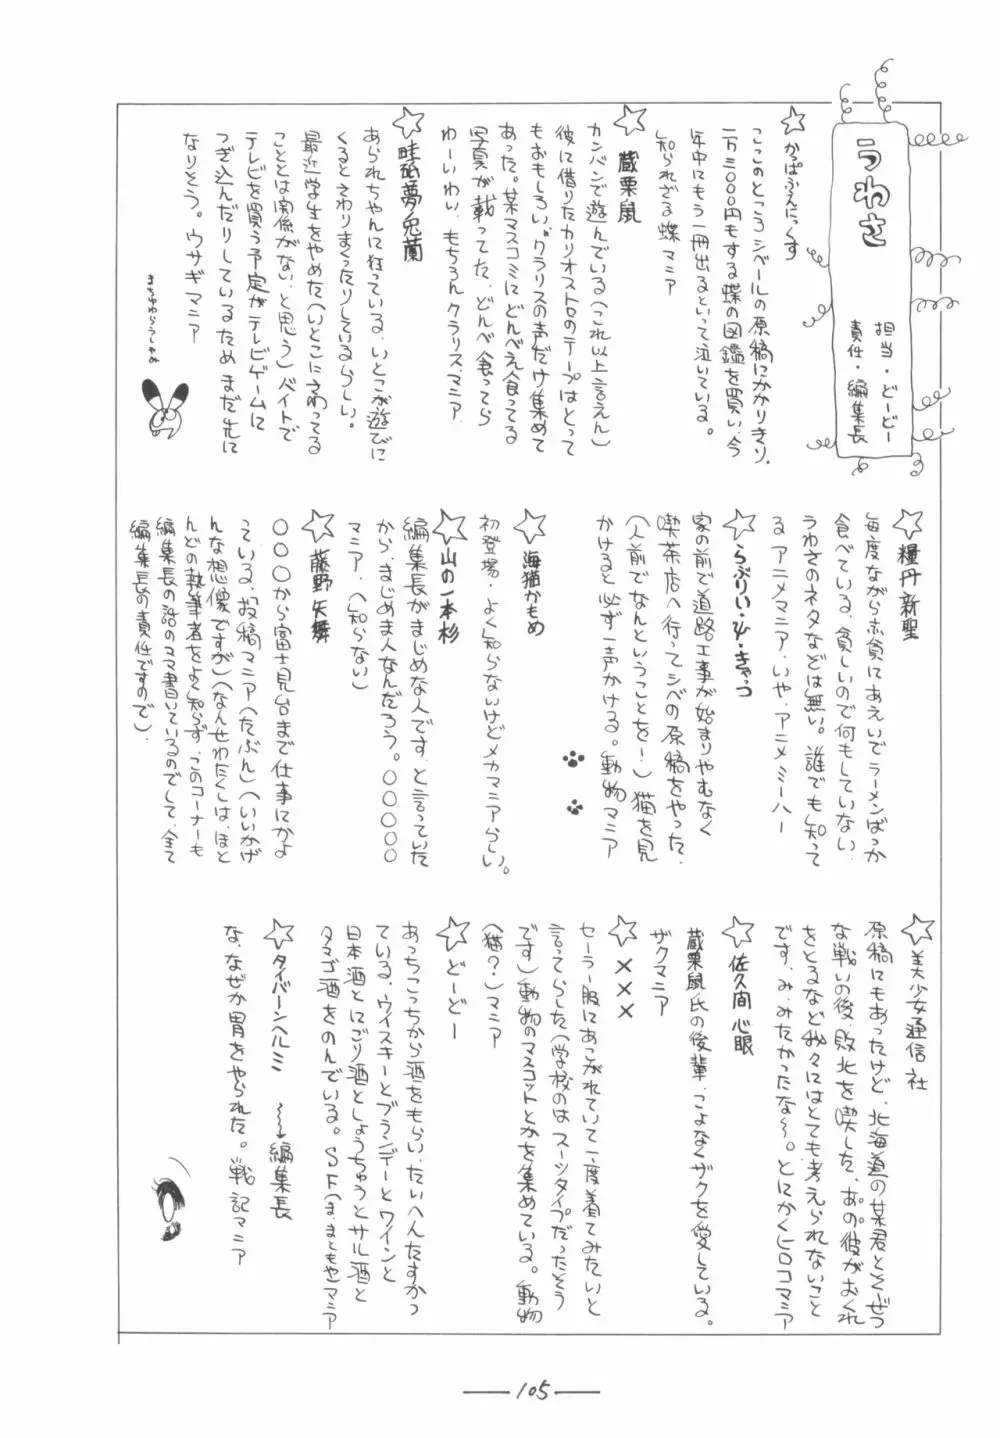 うわさ
担当・どーどー
責任・編集長
☆かっぱふぇにっくす
ここのところシベールの原稿にかかりきり、
一万三〇〇〇円もする蝶の図鑑を買い、今
年中にもう一冊出るといって泣いている。
知られざる蝶マニア
☆蔵栗鼠
カンバンで遊んでいる(これ以上言えん)
彼に借りたカリオストロのテープはとって
もおもしろい。クラリスの声だけ集めて
あった。某マスコミにどんべえ食ってる
写真が載ってた、どんべ食ってら
わーいわい、もちろんクラリス・マニア
☆畦砥夢兎蘭
あられちゃんに狂っている、いとこが遊びに
くるとさわりまくったりしているらしい。
最近学生をやめた(いとこにさわってる
こととは関係がない、と思う)バイトで
テレビを買う予定がテレビゲームに
つぎ込んだりしているためまだ先に
なりそう。ウサギマニア
☆糧丹新聖
毎度ながら赤貧にあえいでラーメンばっか
食べている、貧しいので何もしていない、
うわさのネタなどは無い。誰でも知って
るアニメマニア・いや、アニメミーハー
☆らぶりい・ψ・きゃっつ
家の前で道路工事が始まりやむなく
喫茶店へ行ってシベの原稿をやった、
(人前でなんということを!)猫を見
かけると必ず一声かける。動物マニア
☆海猫かもめ
初登場・よく知らないけどメカマニアらしい。
☆山の一本杉
編集長がまじめな人です、と言っていた
から、まじめ人なんだろう。〇〇〇〇〇
マニア、(知らない)
☆藤野矢舞
〇〇〇から富士見台まで仕事にかよ
っている、投稿マニア(たぶん)(いいかげ
んな想像ですが)(なんせわたくしは、ほと
んどの執筆者をよく知らず、このコーナーも
編集長の話のママ書いているのでして、全て
編集長の責任ですので)。
☆美少女通信社
原稿にもあったけど、北海道の某君とそぜつ
な戦いの後、敗北を喫した、あの彼がおくれ
をとるなど我々にはとても考えられないこと
です、み、みたかったな〜。とにかくヒロコマニア
☆佐久間心眼
蔵栗鼠氏の後輩、こよなくザクを愛している。
ザクマニア
☆×××
セーラー服にあこがれていて一度着てみたいと
言ってらした(学校のはスーツタイプだったそう
です)動物のマスコットとかを集めている。動物
(猫?)マニア
☆どーどー
あっちこっちから酒をもらい、たいへんたすかっ
ている、ウイスキーとブランデーとワインと
日本酒とにごり酒としょうちゅうとサル酒と
タマゴ酒をのんでいる。SF(ま、まともや)マニア
☆タイバーンヘルミ 〜〜→編集長
な、なぜか胃をやられた。戦記マニア
105